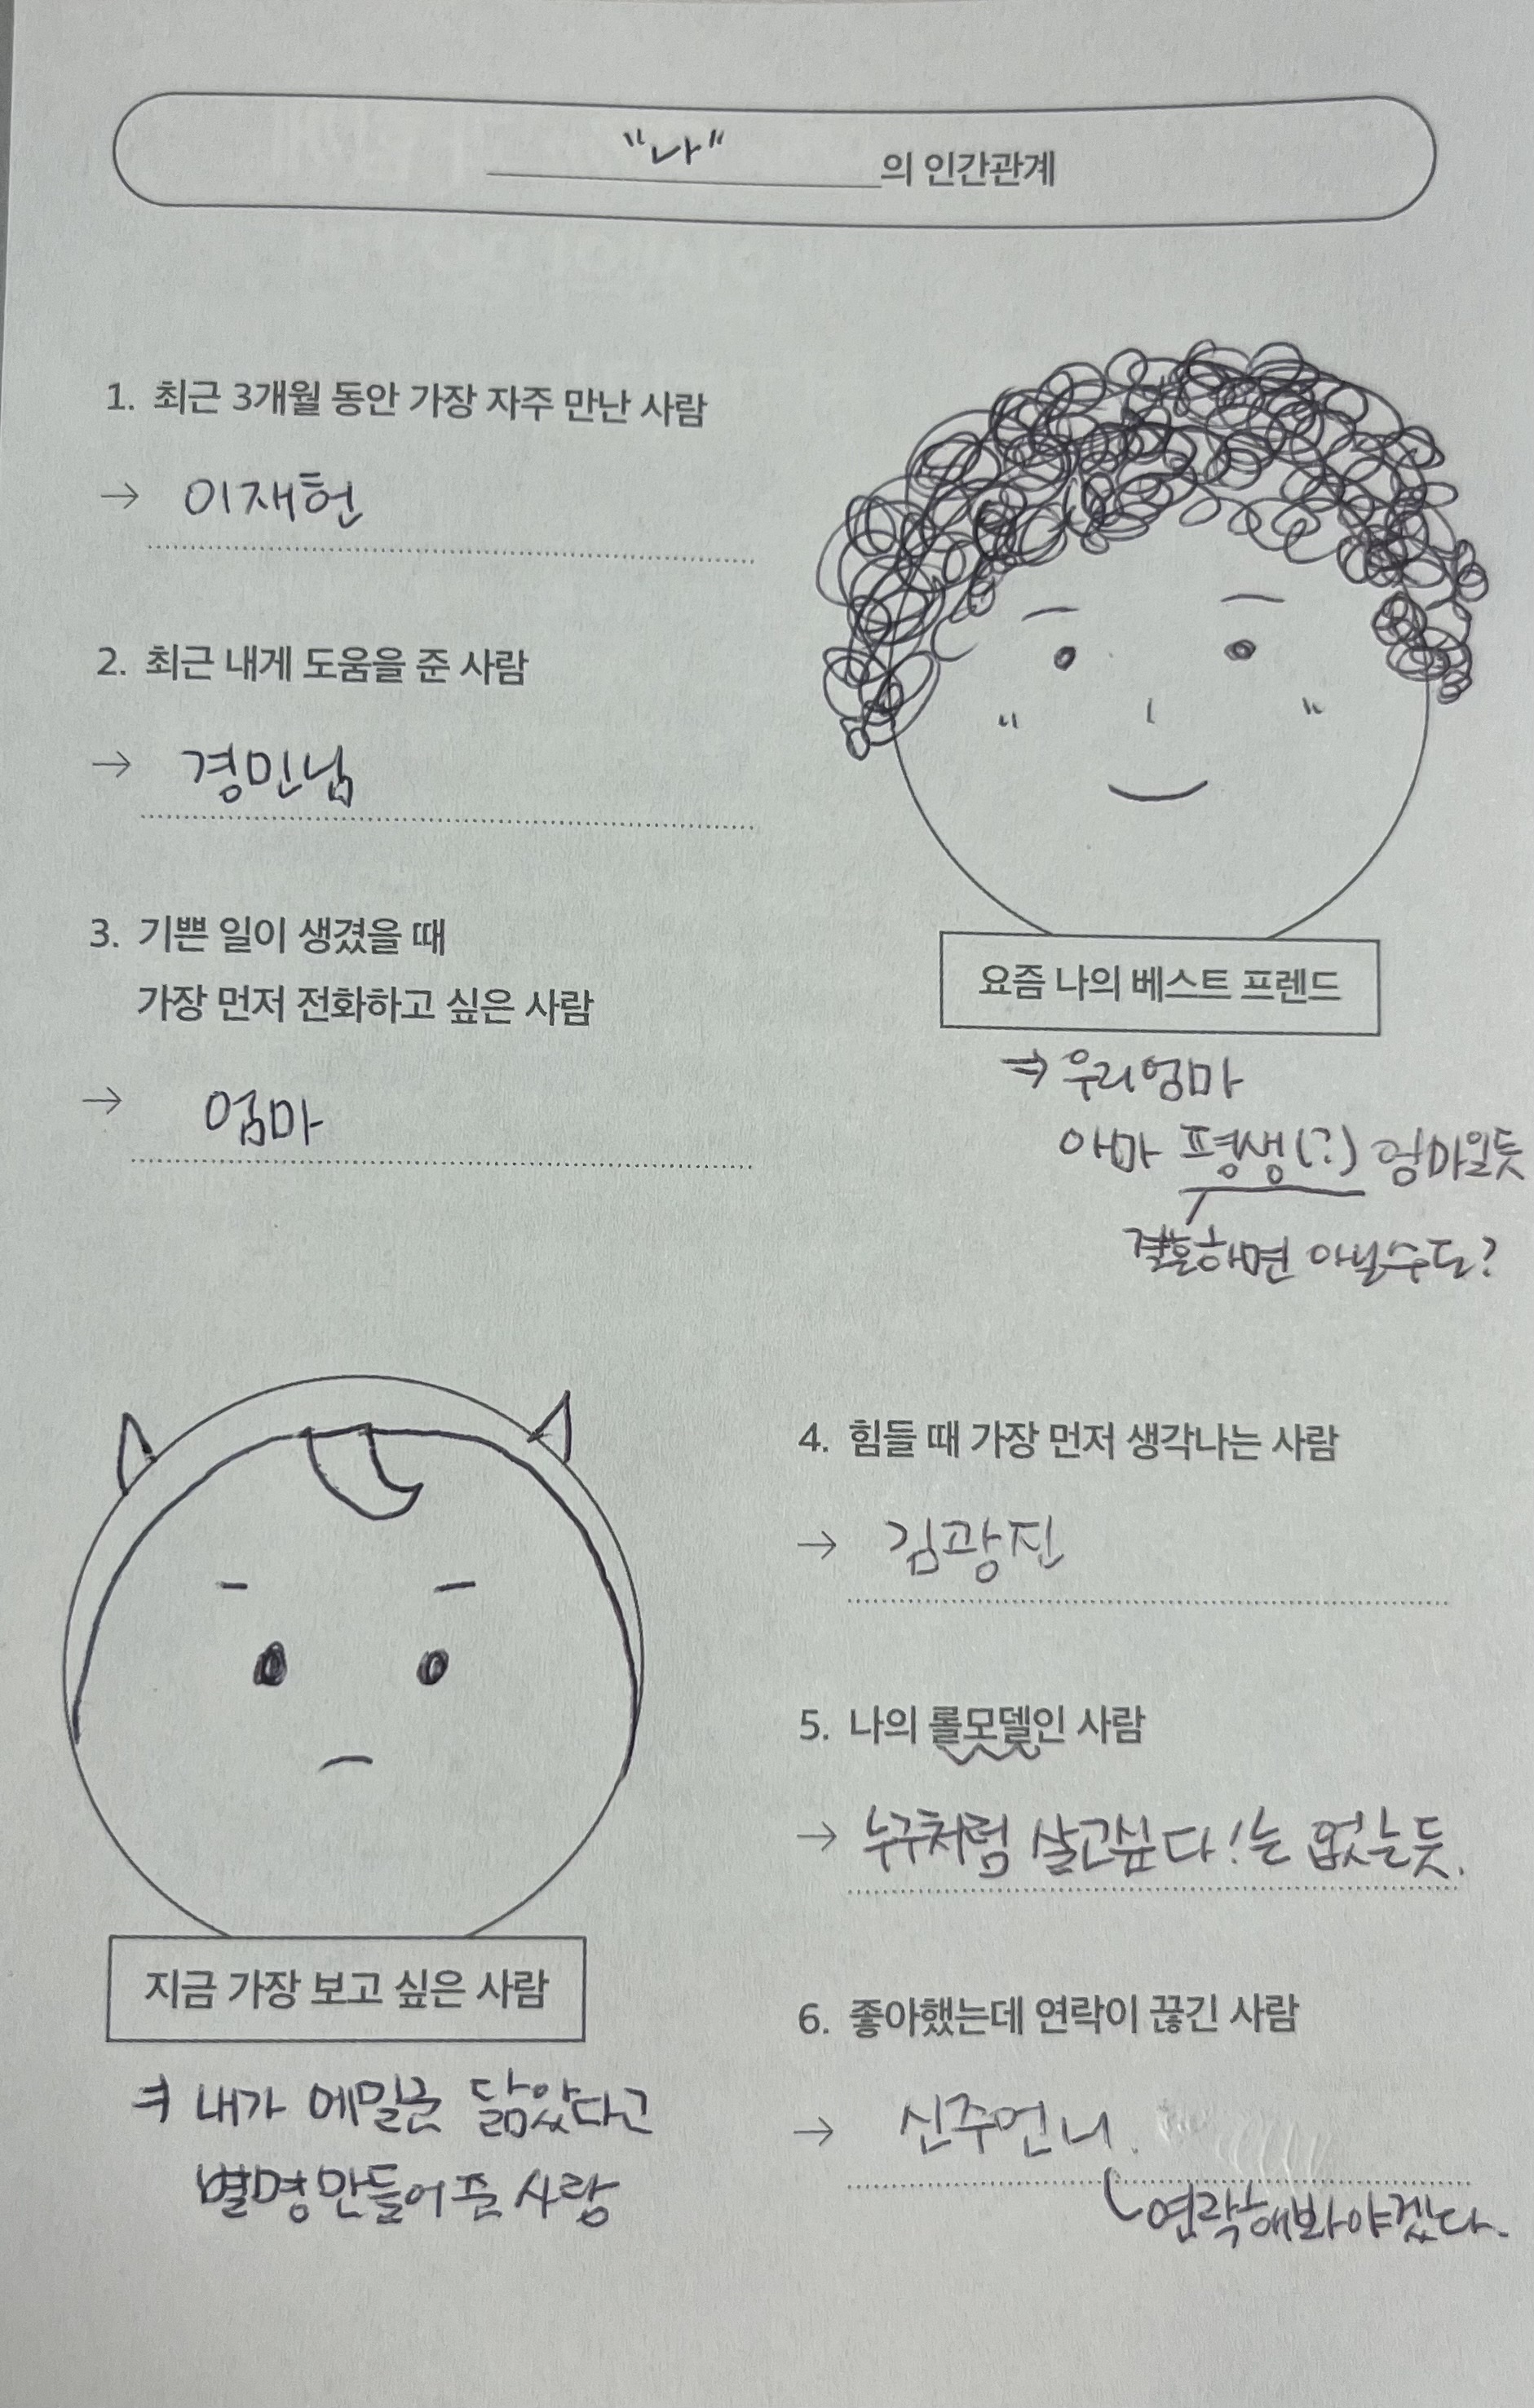 "나"의 인간관계
1. 최근 3개월 동안 가장 자주 만난 사람
→ 이재헌
2. 최근 내게 도움을 준 사람
→ 경민님
3. 기쁜 일이 생겼을 때
가장 먼저 전화하고 싶은 사람
→ 엄마
요즘 나의 베스트 프렌드
⇒ 우리엄마
아마 평생(?) 엄마일듯
결혼하면 아닐수도?
지금 가장 보고 싶은 사람
⇒ 내가 에밀룬 닮았다고
별명만들어준 사람
4. 힘들 때 가장 먼저 생각나는 사람
→ 김광진
5. 나의 롤모델인 사람
→ 누구처럼 살고싶다!는 없는듯.
6. 좋아했는데 연락이 끊긴 사람
→ 신주언니.
연락해봐야겠다.